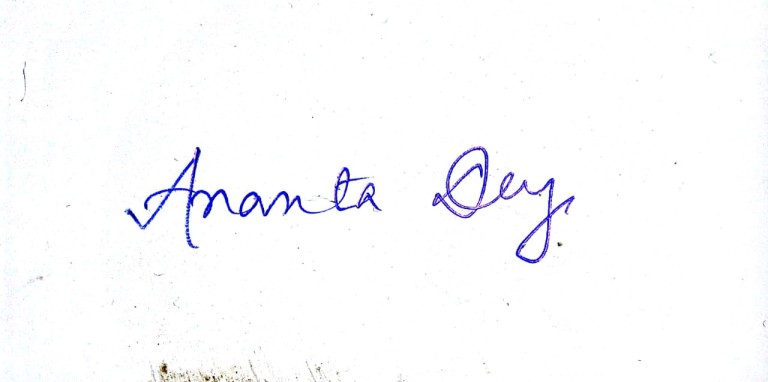 Ananta Dey.